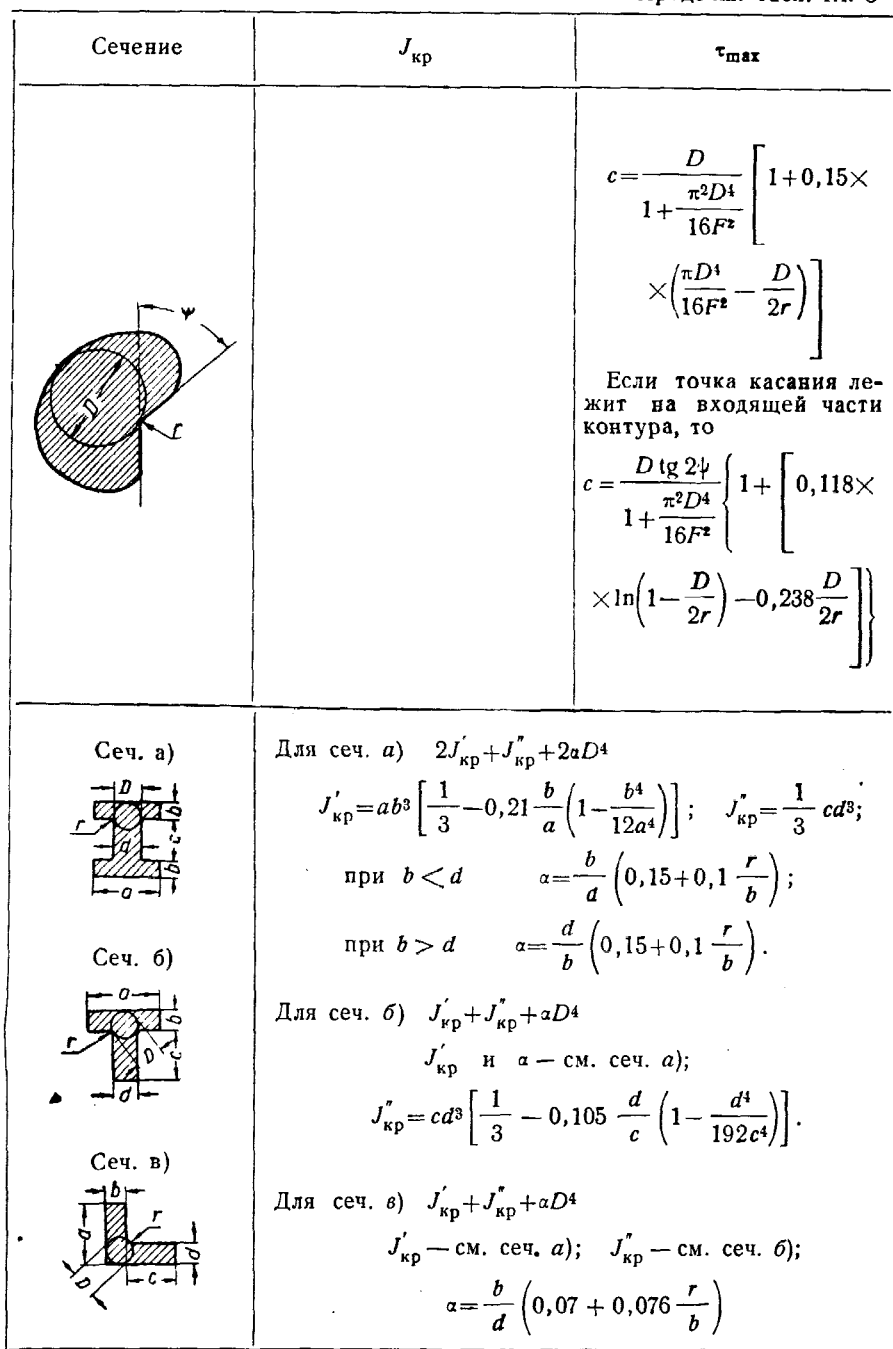 Сечение J_кр τ_max
c = \frac{D}{1+\frac{π²D⁴}{16F²}} [1+0,15×
×(\frac{πD⁴}{16F²} − \frac{D}{2r})]
Если точка касания ле-
жит на входящей части
контура, то
c = \frac{D tg 2ψ}{1+\frac{π²D⁴}{16F²}} {1+ [0,118×
×ln(1−\frac{D}{2r}) −0,238\frac{D}{2r}]}
ψ
D
r
Сеч. а)
D
r
d
b
c
b
a
Для сеч. а) 2J′_кр+J″_кр+2αD⁴
J′_кр=ab³[\frac{1}{3}−0,21\frac{b}{a}(1−\frac{b⁴}{12a⁴})]; J″_кр=\frac{1}{3} cd³;
при b<d α=\frac{b}{d}(0,15+0,1\frac{r}{b});
при b>d α=\frac{d}{b}(0,15+0,1\frac{r}{b}).
Сеч. б)
a
b
r
D
c
d
Для сеч. б) J′_кр+J″_кр+αD⁴
J′_кр и α — см. сеч. а);
J″_кр=cd³[\frac{1}{3} − 0,105 \frac{d}{c}(1−\frac{d⁴}{192c⁴})].
Сеч. в)
b
r
a
d
D
c
Для сеч. в) J′_кр+J″_кр+αD⁴
J′_кр — см. сеч. а); J″_кр — см. сеч. б);
α=\frac{b}{d}(0,07 + 0,076\frac{r}{b})